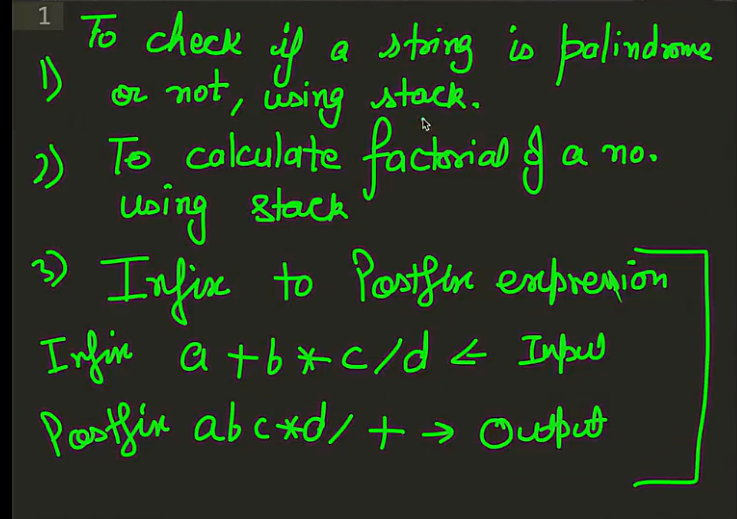 1
To check if a string is palindrome
1) or not, using stack.
2) To calculate factorial of a no.
using stack
3) Infix to Postfix expression
Infix a + b * c / d ← Input
Postfix abc*d/+ → Output